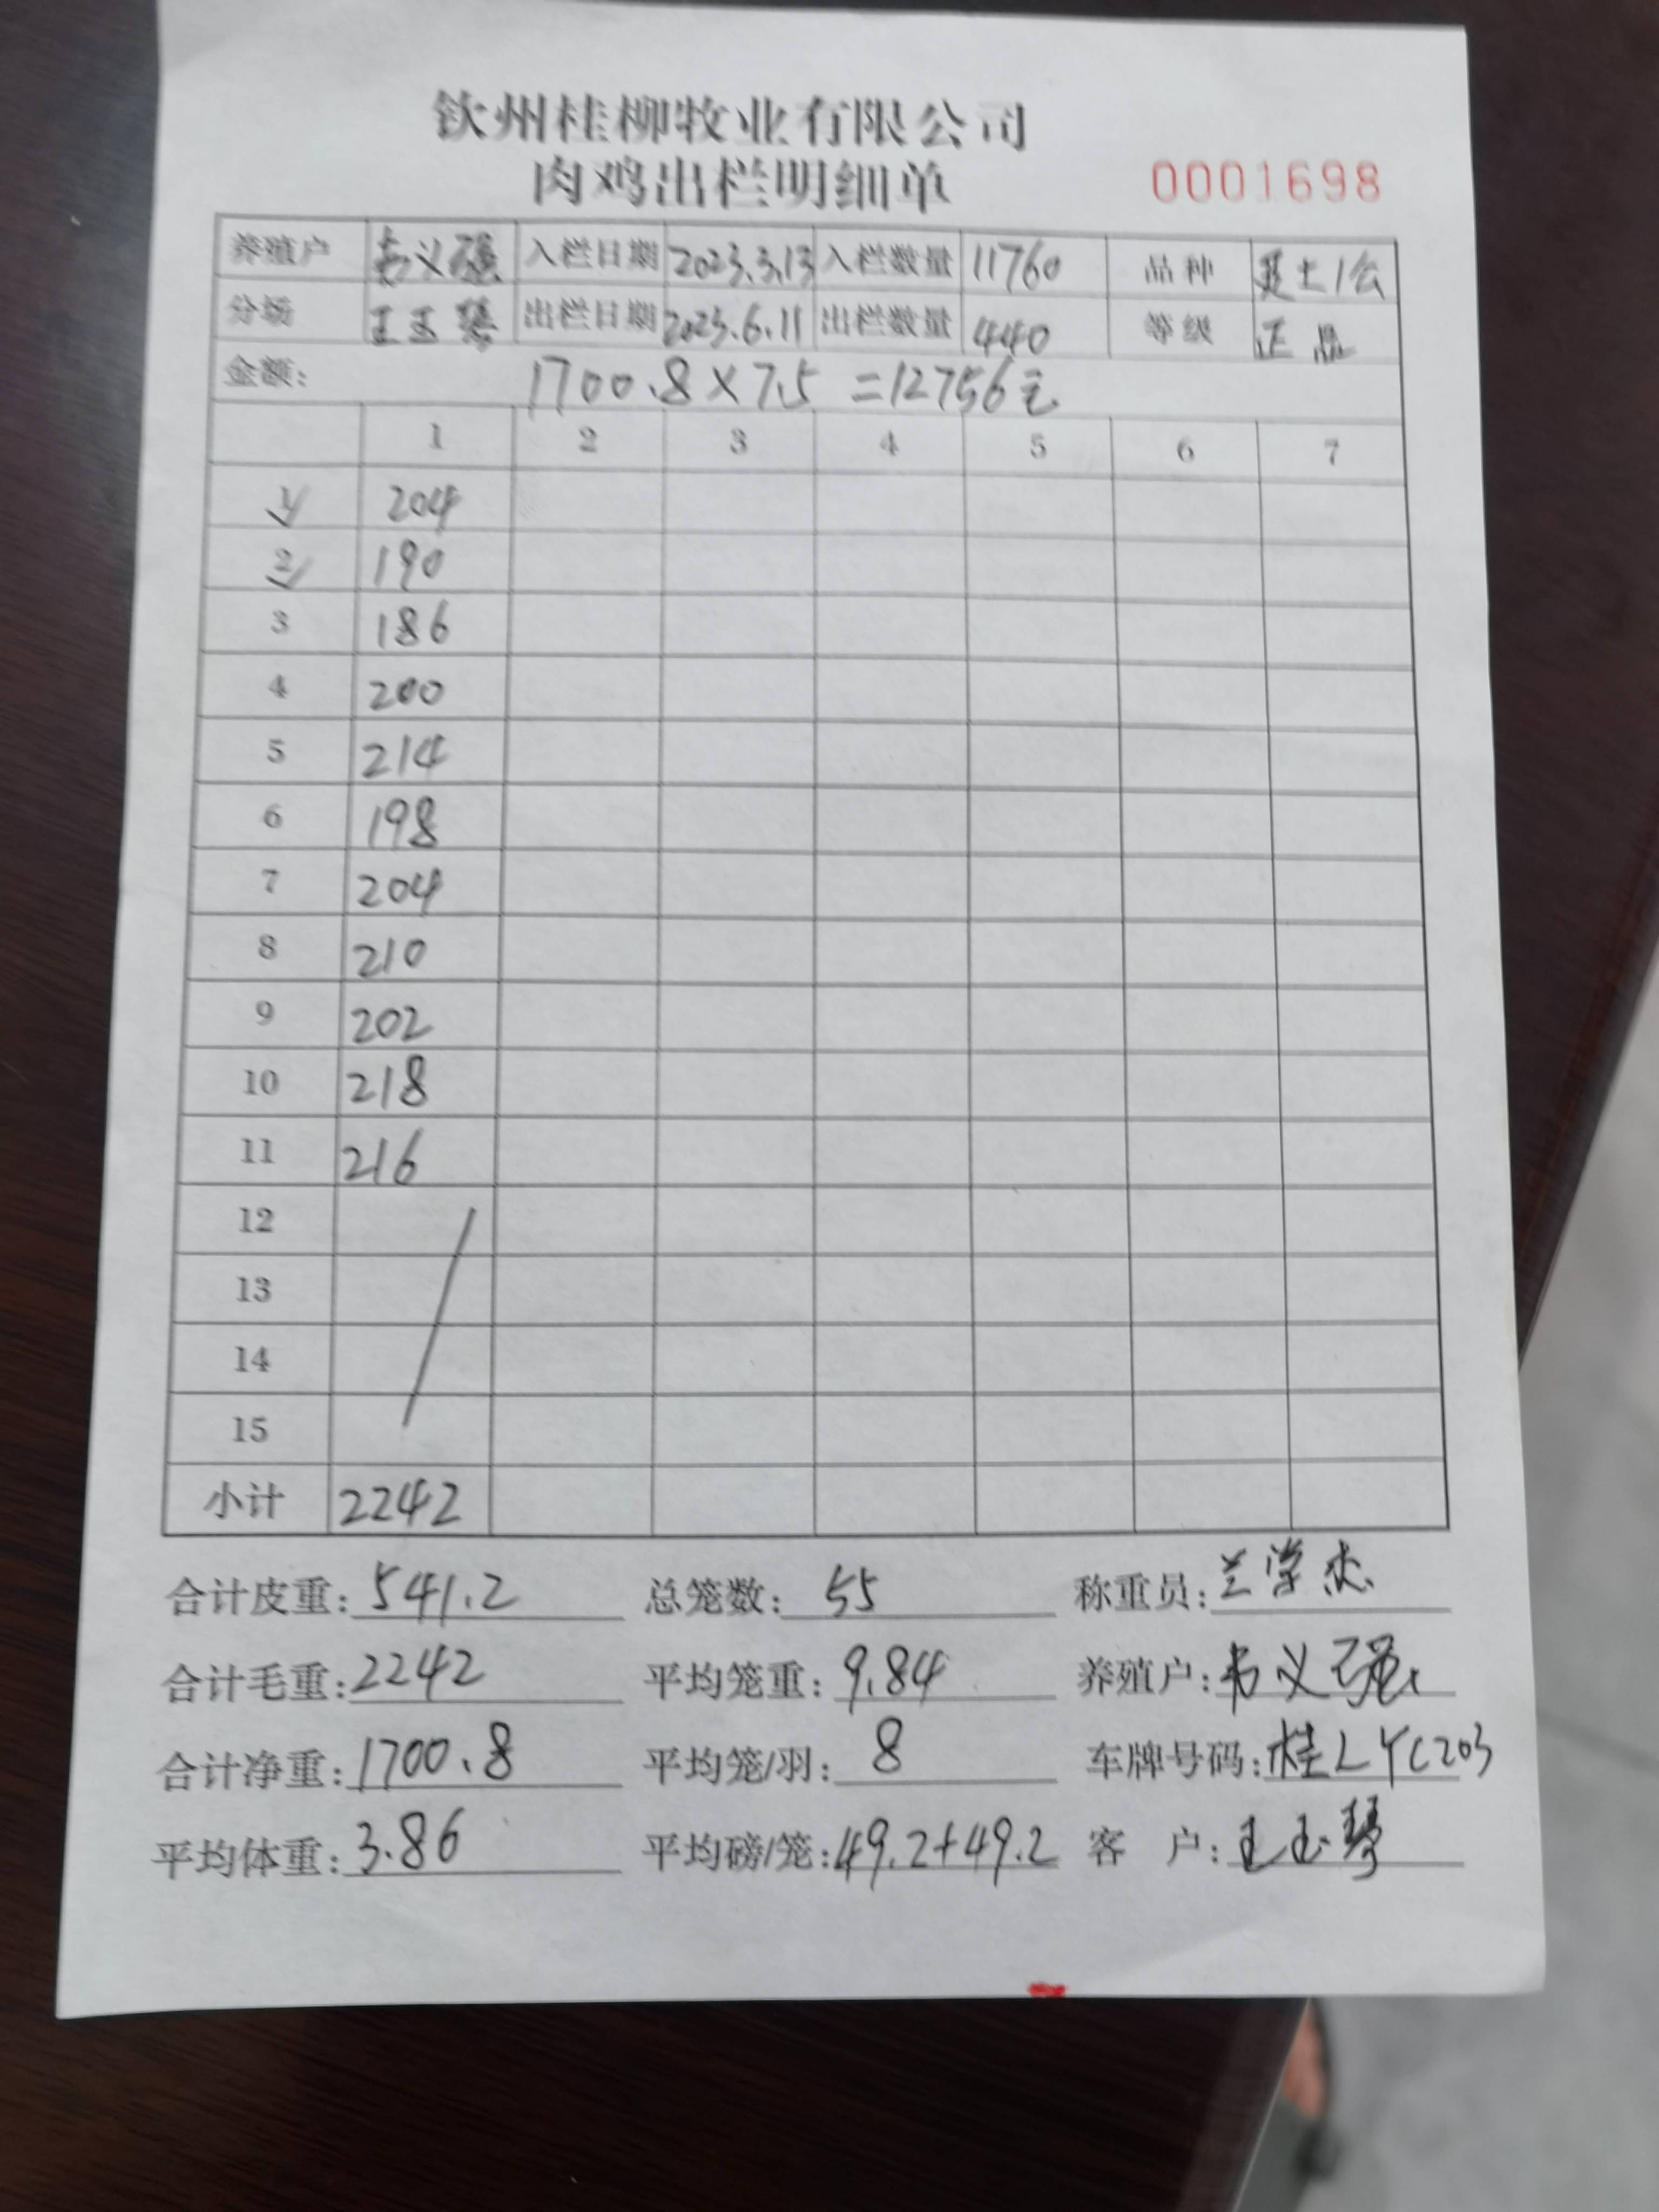 钦州桂柳牧业有限公司
肉鸡出栏明细单 0001698
养殖户 韦义强 入栏日期 2023.3.13 入栏数量 11760 品种 土1公
分场 王玉琴 出栏日期 2023.6.11 出栏数量 440 等级 正品
金额: 1700.8×7.5=12756元
1 2 3 4 5 6 7
1 204
2 190
3 186
4 200
5 214
6 198
7 204
8 210
9 202
10 218
11 216
12
13
14
15
小计 2242
合计皮重: 541.2 总笼数: 55 称重员: 兰学杰
合计毛重: 2242 平均笼重: 9.84 养殖户: 韦义强
合计净重: 1700.8 平均笼/羽: 8 车牌号码: 桂LYC203
平均体重: 3.86 平均磅/笼: 49.2+49.2 客 户: 王玉琴